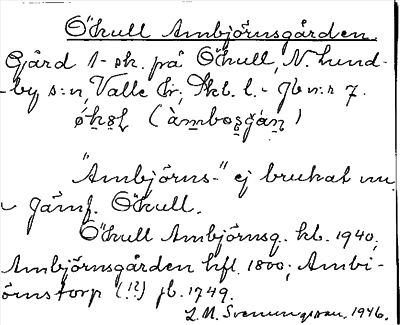 Ökull Ambjörnsgården.
Gård 1- sk. på Ökull, N. Lund-
by s:n, Valle hr, Skb. l. - Jb nr: 7.
ö̀kɵl (àmbo̱sgán̥)
"Ambjörns-" ej brukat nu
- Jämf. Ökull.
Ökull Ambjörnsg. kb. 1940,
Ambjörnsgården hfl. 1800; Ambi-
örnstorp (!?) jb. 1749.
L. M. Svenungsson, 1946.